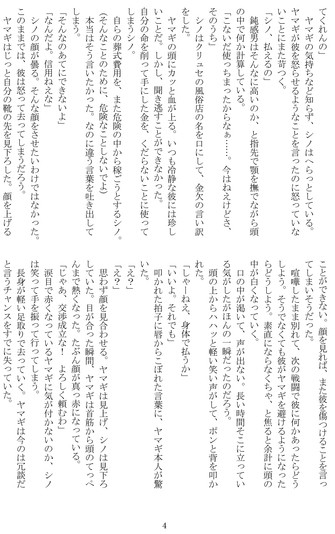 てくれんの」
ヤマギの気持ちなど知らず、シノはへらっとしている。
ヤマギが彼を怒らせるようなことを言ったのに怒っていな
いことにまた傷つく。
「シノ、払えるの」
鈍感男はそんなに高いのか、と指先で顎を撫でながら頭
の中で何か計算している。
「こないだ使っちまったからなぁ……。今はねえけどさ、
そのうち」
シノはクリュセの風俗店の名を口にして、金欠の言い訳
をした。
ヤマギの頭にカッと血が上る。いつも冷静な彼には珍し
いことだ。しかし、聞き逃すことができなかった。
自分の命を削って手にした金を、くだらないことに使って
しまうシノ。
（そんなことのために、危険なことしないでよ）
自らの葬式費用を、また危険の中から稼ごうとするシノ。
本当はそう言いたかった。なのに違う言葉を吐き出して
しまう。
「そんなのあてにできないよ」
「なんだよ。信用ねえな」
シノの顔が曇る。そんな顔をさせたいわけではなかった。
このままでは、彼は怒って去ってしまうだろう。
ヤマギはじっと自分の靴の先を見下ろした。顔を上げる
ことができない。顔を見れば、また彼を傷つけることを言っ
てしまいそうだった。
喧嘩したまま別れて、次の戦闘で彼に何かあったらどう
しよう。そうでなくても彼がヤマギを避けるようになった
らどうしよう。素直にならなくちゃ、と焦ると余計に頭の
中が白くなっていく。
口の中が渇いて、声が出ない。長い時間そこに立ってい
る気がしたがほんの一瞬だったのだろう。
頭の上からハハッと軽い笑い声がして、ポンと背を叩か
れた。
「しゃーねえ、身体で払うか」
「いいよ。それでも」
叩かれた拍子に唇からこぼれた言葉に、ヤマギ本人が驚
いた。
「え？」
「え？」
思わず顔を見合わせる。ヤマギは見上げ、シノは見下ろ
していた。目が合った瞬間、ヤマギは首筋から頭のてっぺ
んまで熱くなった。たぶん顔が真っ赤になっている。
「じゃあ、交渉成立な！　よろしく頼むわ」
涙目で赤くなっているヤマギに気が付かないのか、シノ
は笑って手を振って行ってしまう。
長身が軽い足取りで去っていく。ヤマギは今のは冗談だ
と言うチャンスをすでに失っていた。
4